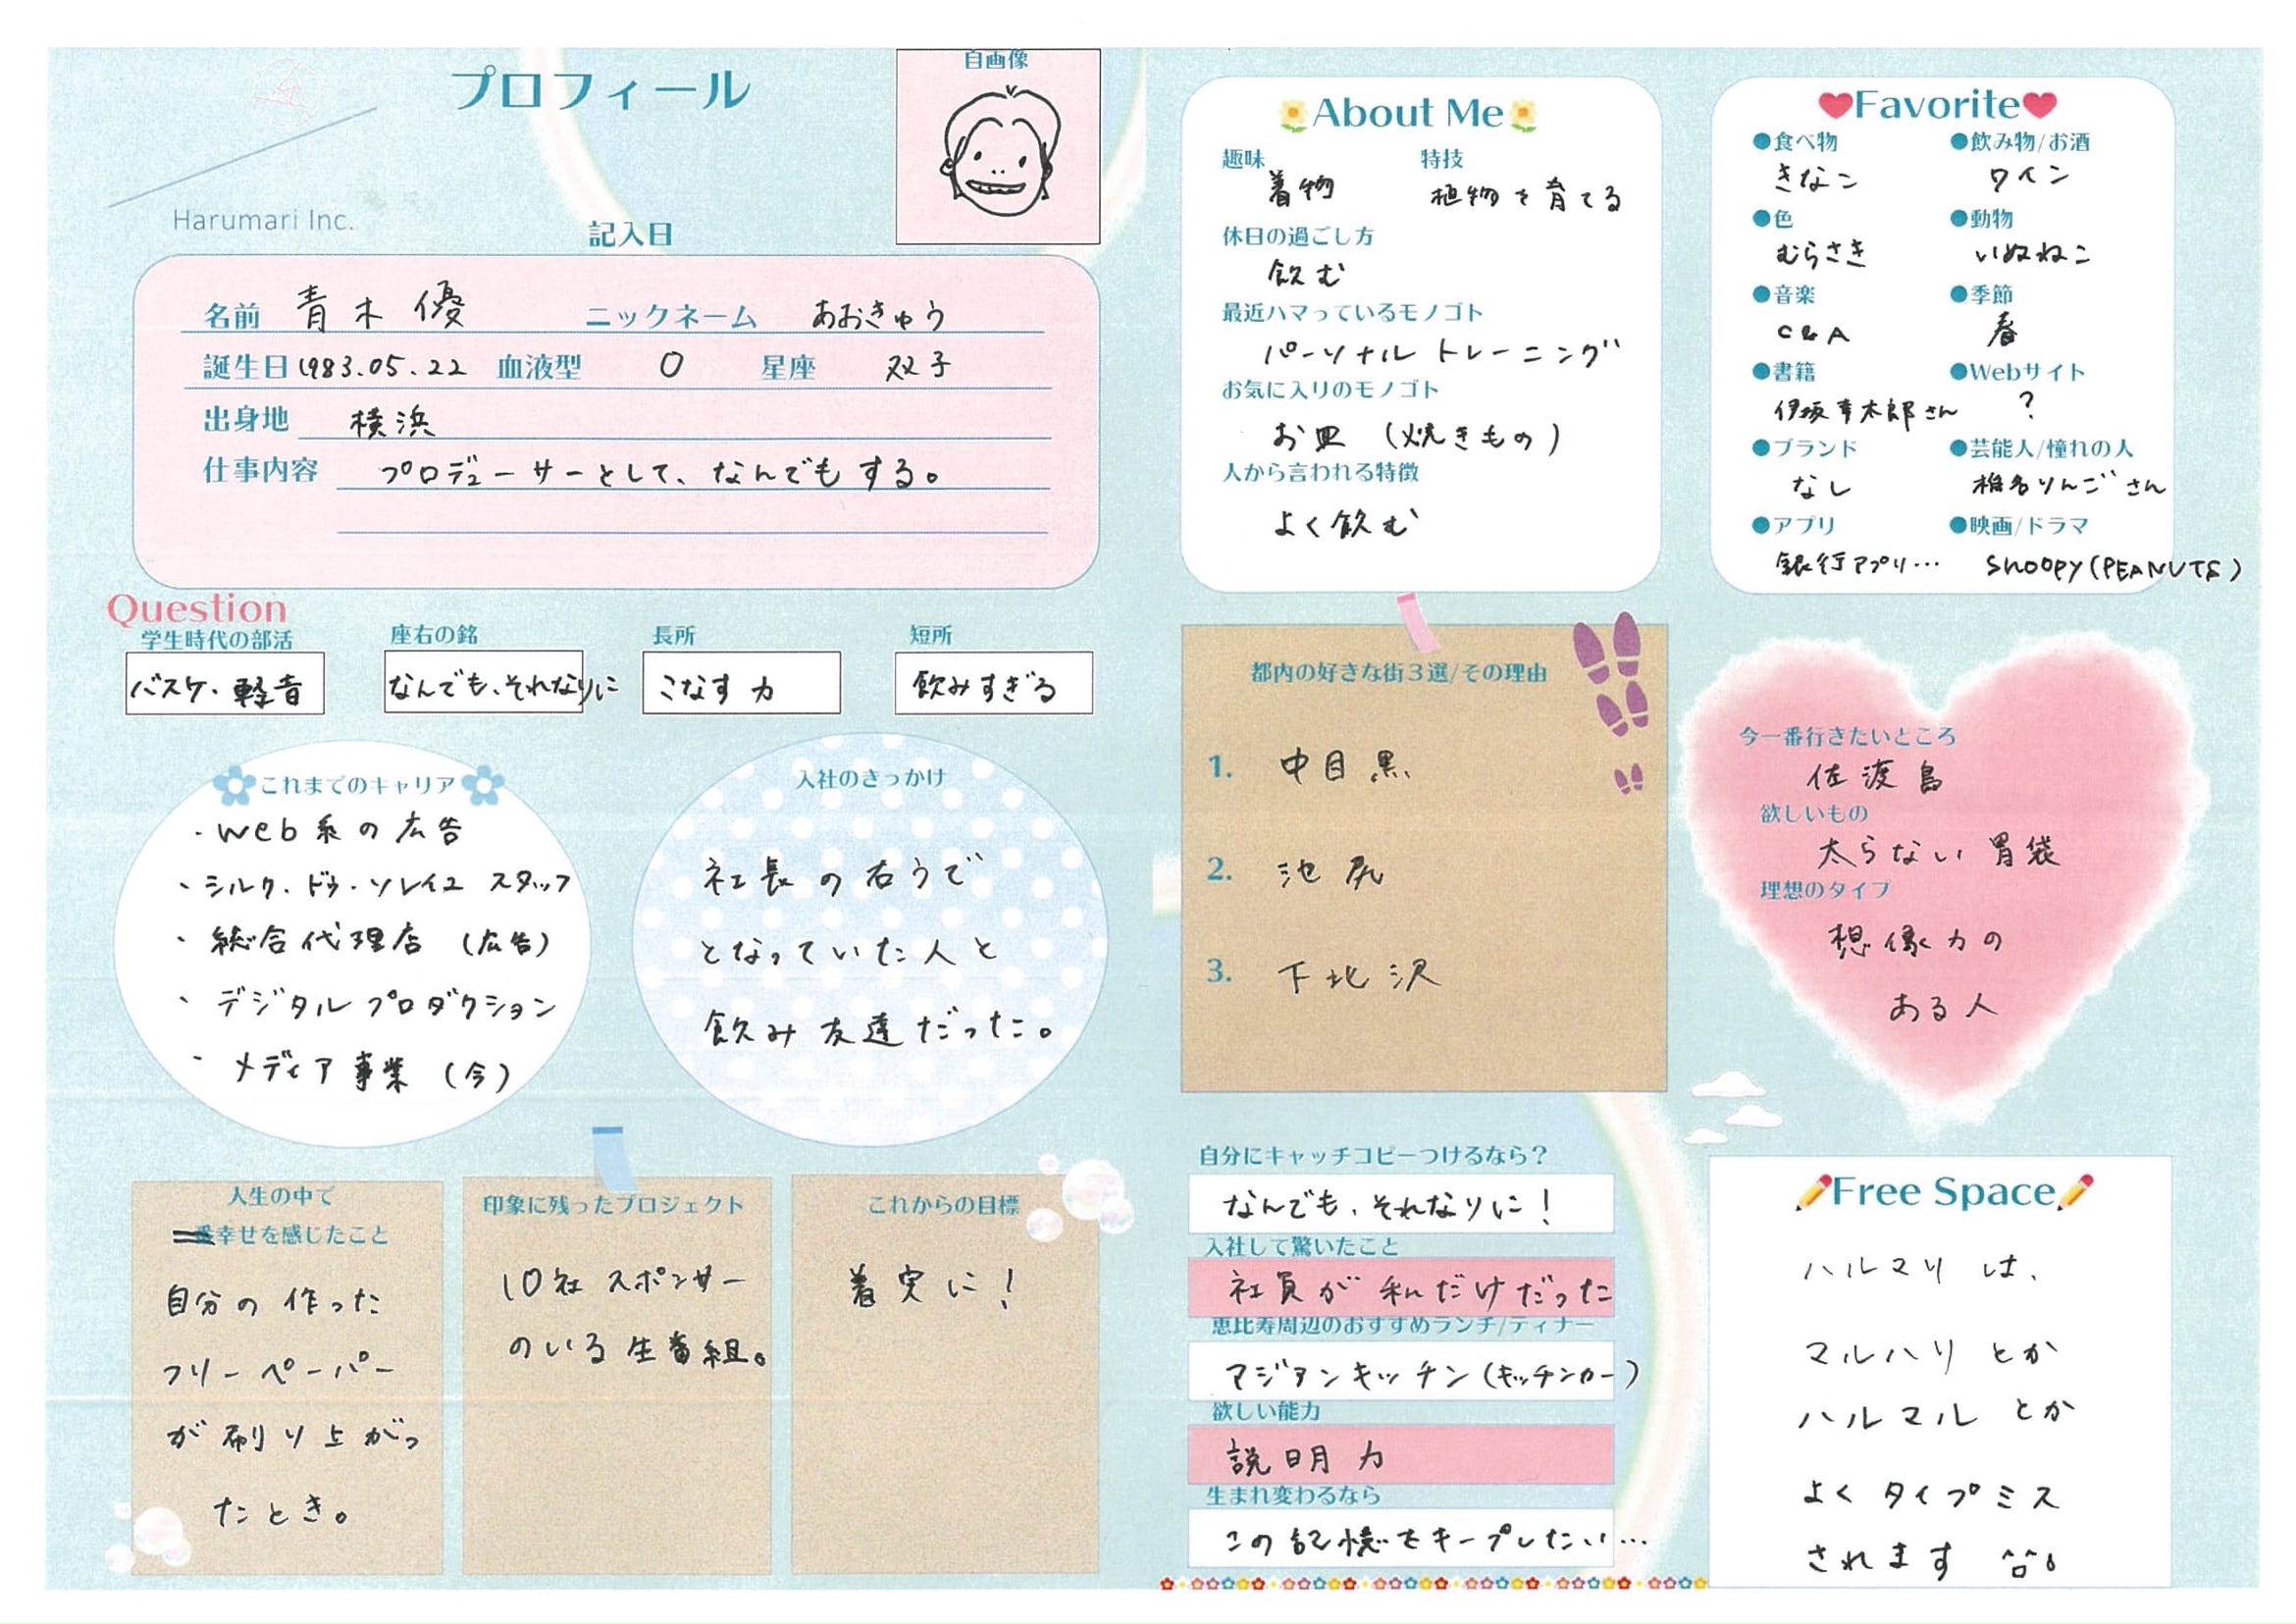 プロフィール
自画像
Harumari Inc.
記入日
名前 青木 優 ニックネーム あおきゅう
誕生日 1983.05.22 血液型 O 星座 双子
出身地 横浜
仕事内容 プロデューサーとして、なんでもする。
Question
学生時代の部活 座右の銘 長所 短所
バスケ・軽音 なんでも、それなりに こなす力 飲みすぎる
これまでのキャリア
・web系の広告
・シルク・ドゥ・ソレイユ スタッフ
・総合代理店 (広告)
・デジタルプロダクション
・メディア事業 (今)
入社のきっかけ
社長の右うで
となっていた人と
飲み友達だった。
人生の中で
一番幸せを感じたこと
自分の作った
フリーペーパー
が刷り上がっ
たとき。
印象に残ったプロジェクト
10社スポンサー
のいる生番組。
これからの目標
着実に!
About Me
趣味 特技
着物 植物を育てる
休日の過ごし方
飲む
最近ハマっているモノゴト
パーソナルトレーニング
お気に入りのモノゴト
お皿 (焼きもの)
人から言われる特徴
よく飲む
Favorite
●食べ物 ●飲み物/お酒
きなこ ワイン
●色 ●動物
むらさき いぬねこ
●音楽 ●季節
C&A 春
●書籍 ●Webサイト
伊坂幸太郎さん ?
●ブランド ●芸能人/憧れの人
なし 椎名りんごさん
●アプリ ●映画/ドラマ
銀行アプリ… Snoopy(PEANUTS)
都内の好きな街3選/その理由
1. 中目黒
2. 池尻
3. 下北沢
今一番行きたいところ
佐渡島
欲しいもの
太らない胃袋
理想のタイプ
想像力の
ある人
自分にキャッチコピーつけるなら?
なんでも、それなりに!
入社して驚いたこと
社員が私だけだった
恵比寿周辺のおすすめランチ/ディナー
マジアンキッチン(キッチンカー)
欲しい能力
説明力
生まれ変わるなら
この記憶をキープしたい…
Free Space
ハルマリは、
マルハリとか
ハルマルとか
よくタイプミス
されます